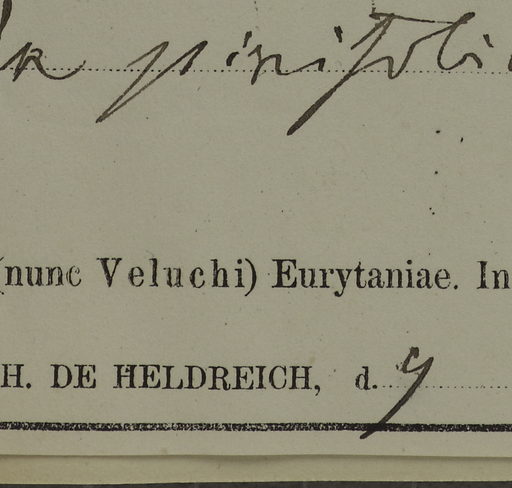 pinifoli
(nunc Veluchi) Eurytaniae. In
H. DE HELDREICH, d. 9